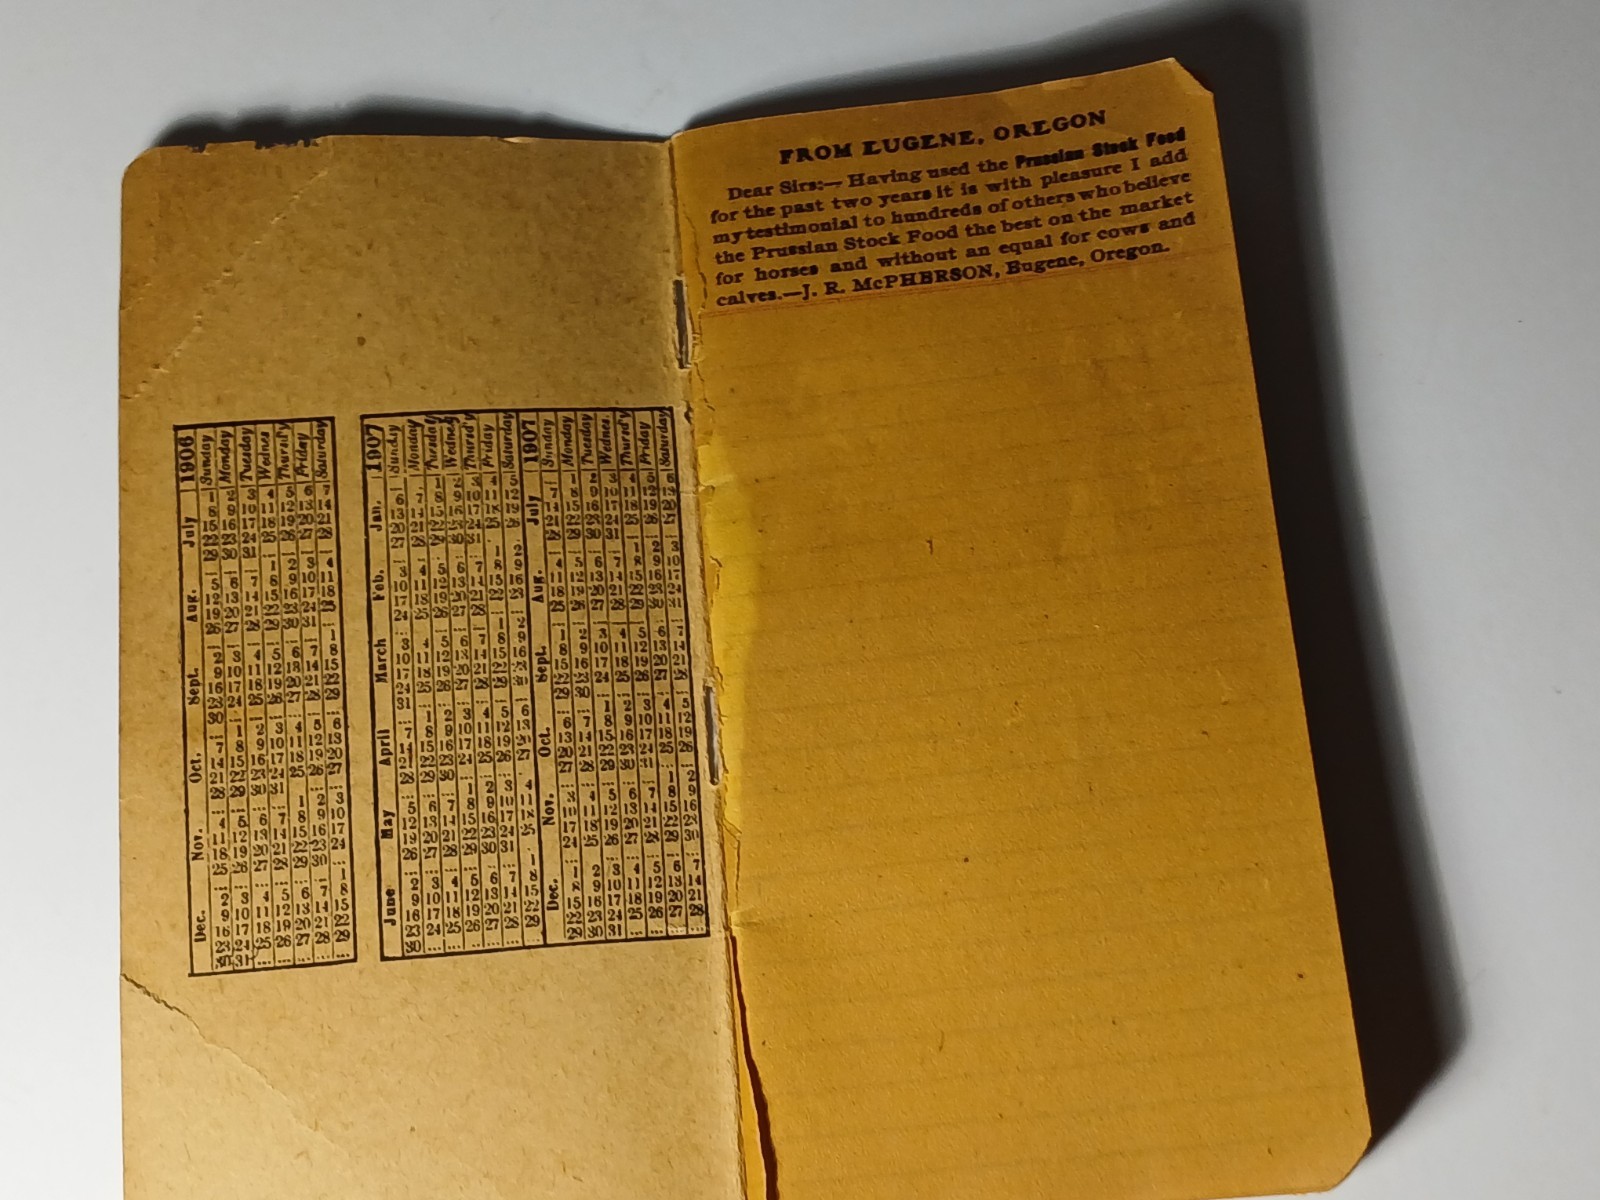 1906
Sunday
Monday
Tuesday
Wednes
Thursd'y
Friday
Saturday
July
1 2 3 4 5 6 7
8 9 10 11 12 13 14
15 16 17 18 19 20 21
22 23 24 25 26 27 28
29 30 31
Aug.
1 2 3 4
5 6 7 8 9 10 11
12 13 14 15 16 17 18
19 20 21 22 23 24 25
26 27 28 29 30 31
Sept.
1
2 3 4 5 6 7 8
9 10 11 12 13 14 15
16 17 18 19 20 21 22
23 24 25 26 27 28 29
30
Oct.
1 2 3 4 5 6
7 8 9 10 11 12 13
14 15 16 17 18 19 20
21 22 23 24 25 26 27
28 29 30 31
Nov.
1 2 3
4 5 6 7 8 9 10
11 12 13 14 15 16 17
18 19 20 21 22 23 24
25 26 27 28 29 30
Dec.
1
2 3 4 5 6 7 8
9 10 11 12 13 14 15
16 17 18 19 20 21 22
23 24 25 26 27 28 29
30 31
1907
Sunday
Monday
Tuesday
Wednesd
Thursd'y
Friday
Saturday
Jan.
1 2 3 4 5
6 7 8 9 10 11 12
13 14 15 16 17 18 19
20 21 22 23 24 25 26
27 28 29 30 31
Feb.
1 2
3 4 5 6 7 8 9
10 11 12 13 14 15 16
17 18 19 20 21 22 23
24 25 26 27 28
March
1 2
3 4 5 6 7 8 9
10 11 12 13 14 15 16
17 18 19 20 21 22 23
24 25 26 27 28 29 30
31
April
1 2 3 4 5 6
7 8 9 10 11 12 13
14 15 16 17 18 19 20
21 22 23 24 25 26 27
28 29 30
May
1 2 3 4
5 6 7 8 9 10 11
12 13 14 15 16 17 18
19 20 21 22 23 24 25
26 27 28 29 30 31
June
1
2 3 4 5 6 7 8
9 10 11 12 13 14 15
16 17 18 19 20 21 22
23 24 25 26 27 28 29
30
1907
Sunday
Monday
Tuesday
Wednes.
Thursd'y
Friday
Saturday
July
1 2 3 4 5 6
7 8 9 10 11 12 13
14 15 16 17 18 19 20
21 22 23 24 25 26 27
28 29 30 31
Aug.
1 2 3
4 5 6 7 8 9 10
11 12 13 14 15 16 17
18 19 20 21 22 23 24
25 26 27 28 29 30 31
Sept.
1 2 3 4 5 6 7
8 9 10 11 12 13 14
15 16 17 18 19 20 21
22 23 24 25 26 27 28
29 30
Oct.
1 2 3 4 5
6 7 8 9 10 11 12
13 14 15 16 17 18 19
20 21 22 23 24 25 26
27 28 29 30 31
Nov.
1 2
3 4 5 6 7 8 9
10 11 12 13 14 15 16
17 18 19 20 21 22 23
24 25 26 27 28 29 30
Dec.
1 2 3 4 5 6 7
8 9 10 11 12 13 14
15 16 17 18 19 20 21
22 23 24 25 26 27 28
29 30 31
FROM EUGENE, OREGON
Dear Sirs:— Having used the Prussian Stock Food
for the past two years it is with pleasure I add
my testimonial to hundreds of others who believe
the Prussian Stock Food the best on the market
for horses and without an equal for cows and
calves.—J. R. McPHERSON, Eugene, Oregon.